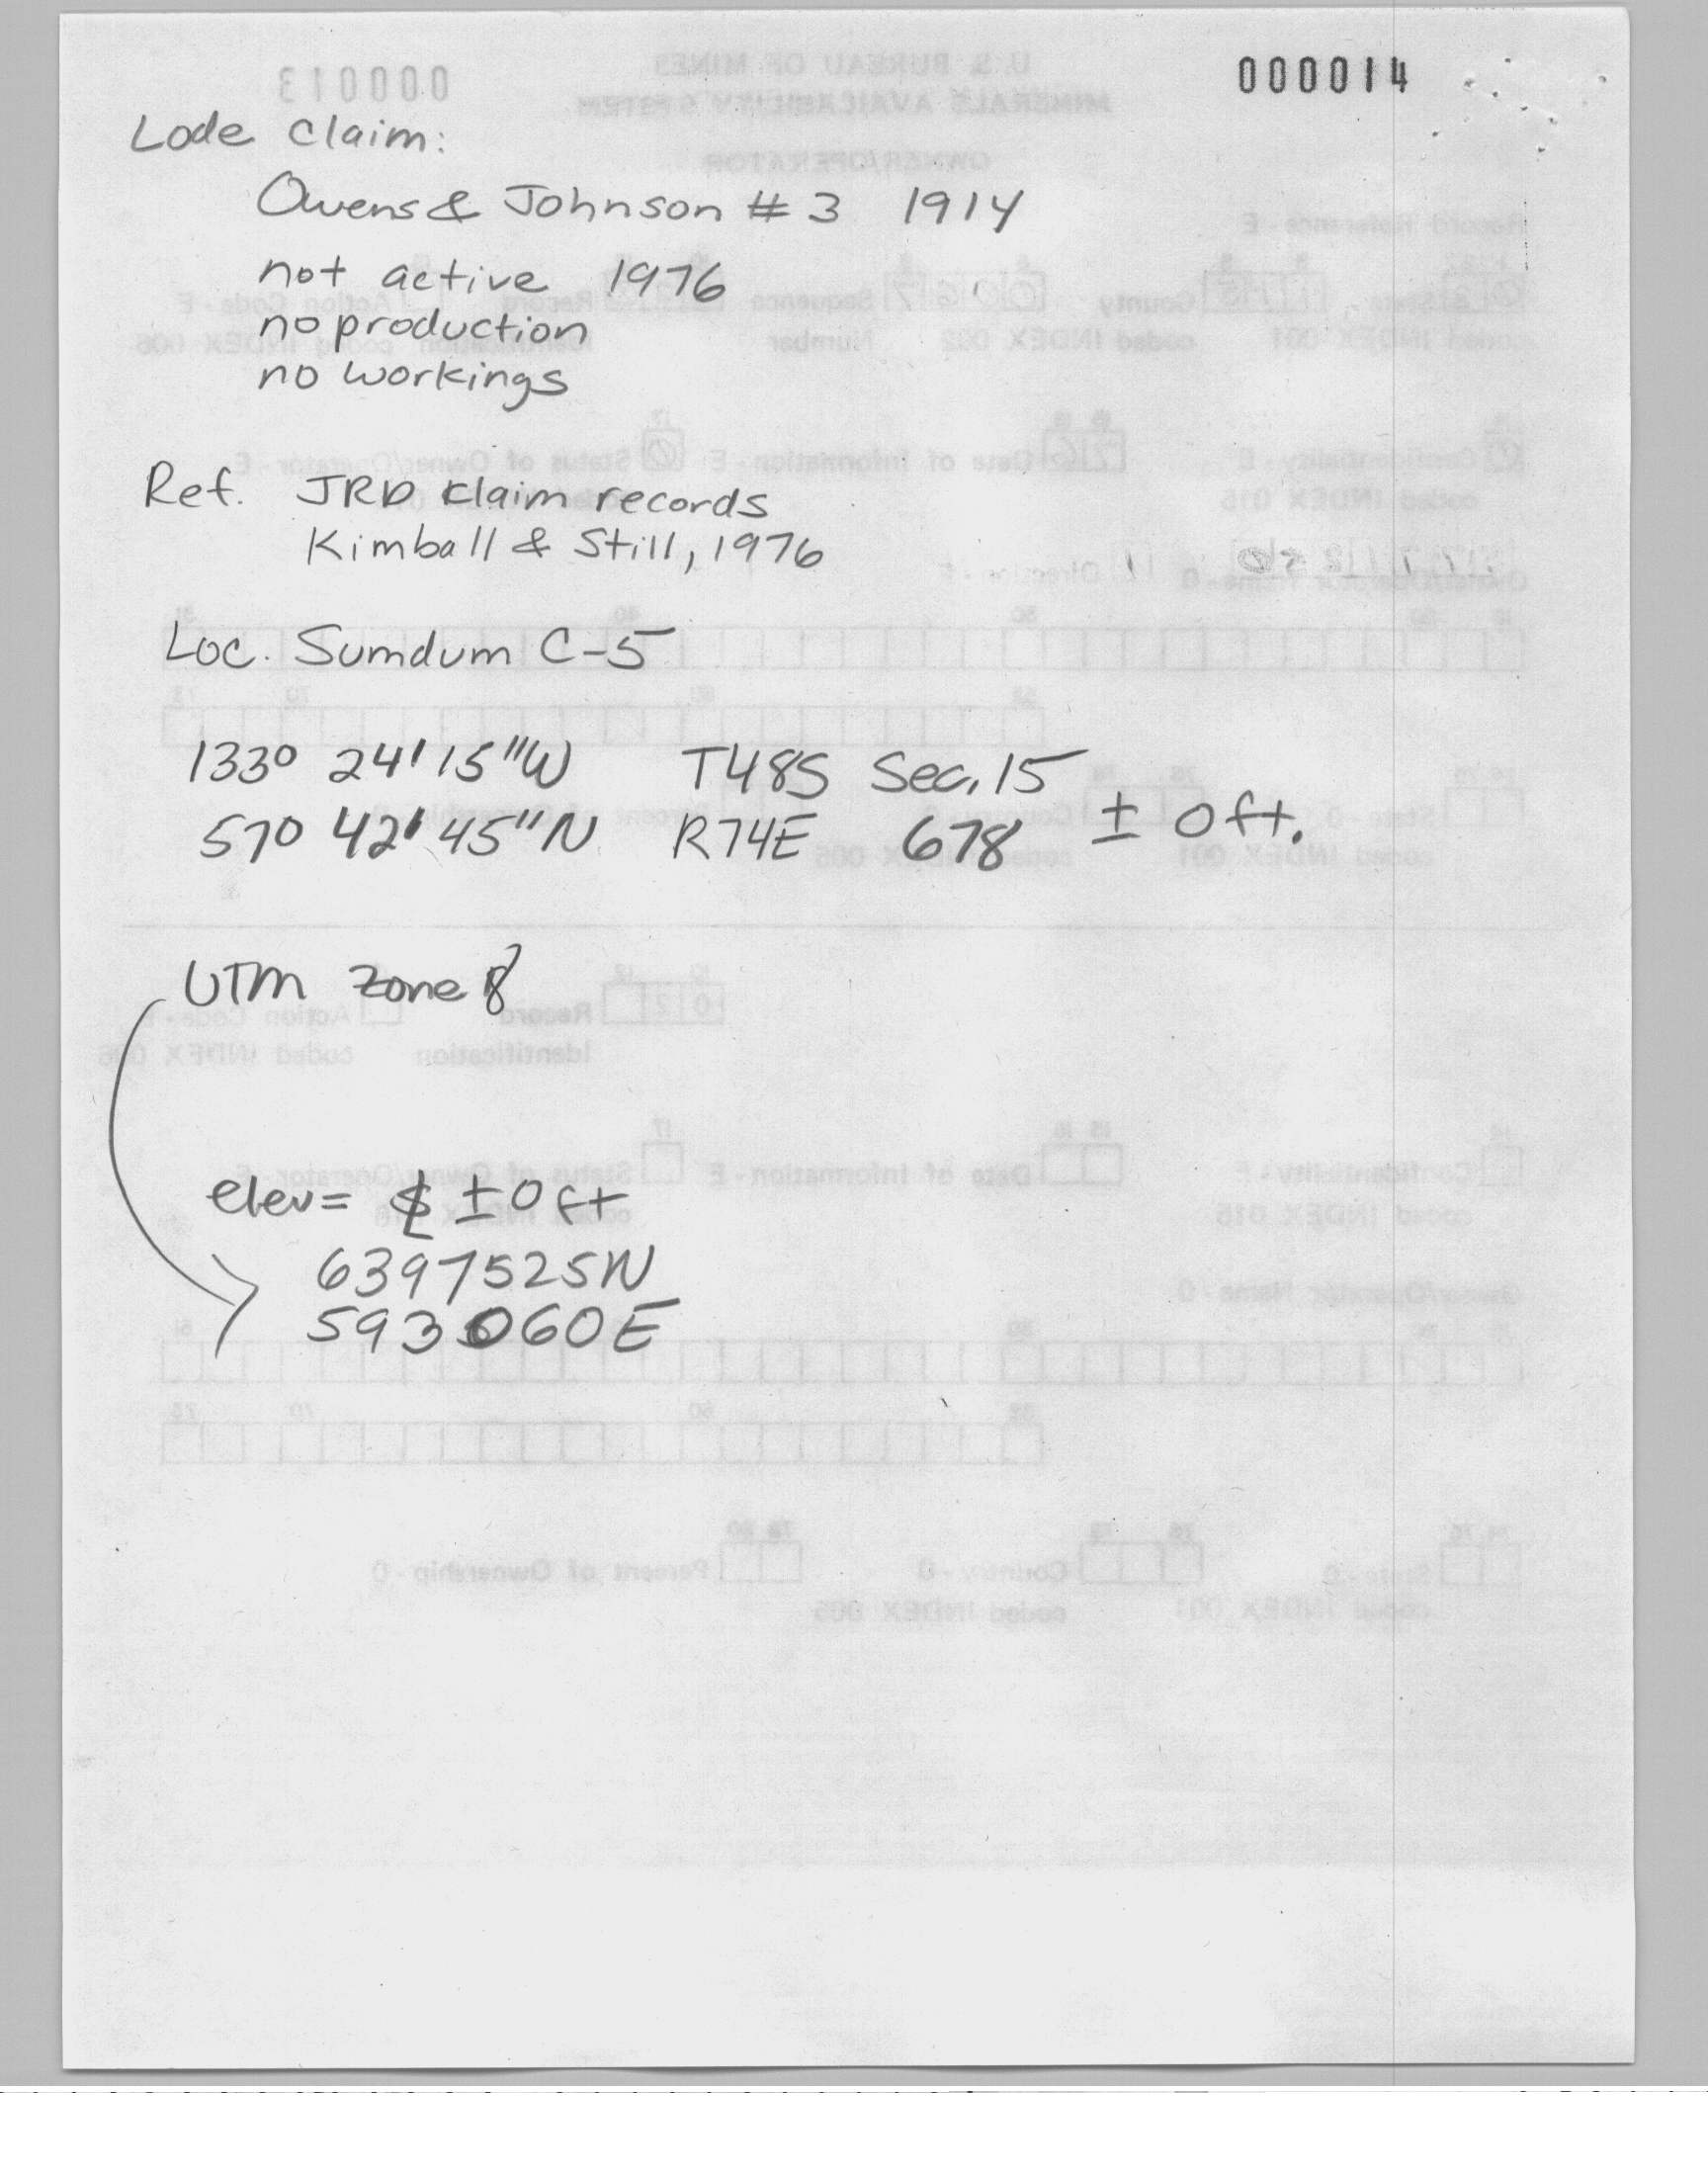 000014
Lode Claim:
Owens & Johnson # 3 1914
not active 1976
no production
no workings
Ref. JRD claim records
Kimball & Still, 1976
Loc. Sumdum C-5
133° 24' 15" W T48S Sec. 15
57° 42' 45" N R74E 678 ± 0 ft.
UTM Zone 8
elev = ± 0 ft
6397525N
593060E